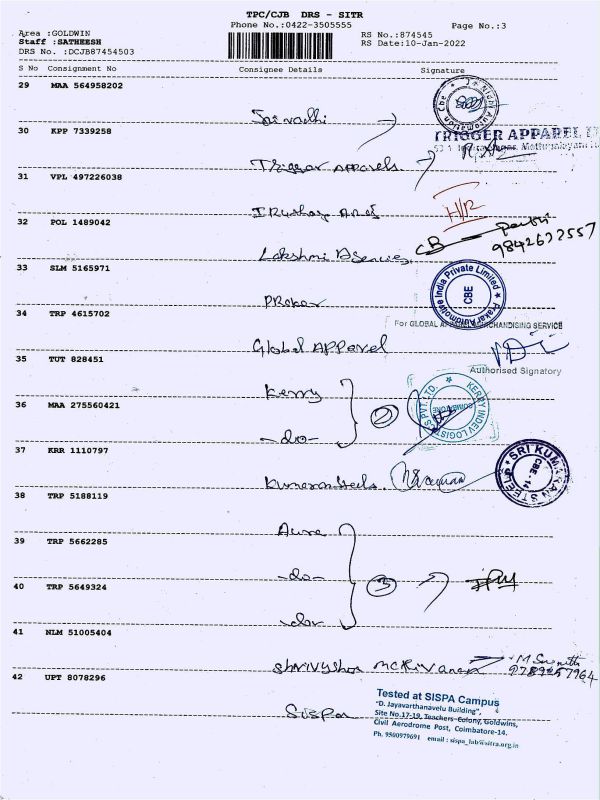 TPC/CJB DRS - SITR
Phone No.:0422-3505555
Page No.:3
Area :GOLDWIN
Staff :SATHEESH
DRS No. :DCJB87454503
RS No.:874545
RS Date:10-Jan-2022
S No Consignment No Consignee Details Signature
29 MAA 564958202
Sai vadhi
30 KPP 7339258
TRIGGER APPAREL
Trigger Apparels
31 VPL 497226038
H/R
32 POL 1489042
CB
9842677557
Lakshmi
33 SLM 5165971
Prakar Automotive India Private Limited
CBE
Prokar
34 TRP 4615702
For GLOBAL APPAREL MERCHANDISING SERVICE
Global Apparel
35 TUT 828451
Authorised Signatory
Kerry
KERRY INDEV LOGISTICS PVT. LTD.
COIMBATORE
36 MAA 275560421
2
-do-
37 KRR 1110797
SRI KUMARAN STEELS
CBE - 14
38 TRP 5188119
39 TRP 5662285
-do-
3
40 TRP 5649324
-do-
41 NLM 51005404
9789457964
42 UPT 8078296
Sispa
Tested at SISPA Campus
"D. Jayavarthanavelu Building",
Site No.17-19, Teachers Colony, Goldwins,
Civil Aerodrome Post, Coimbatore-14.
Ph. 9500979691 email : sispa_lab@sitra.org.in